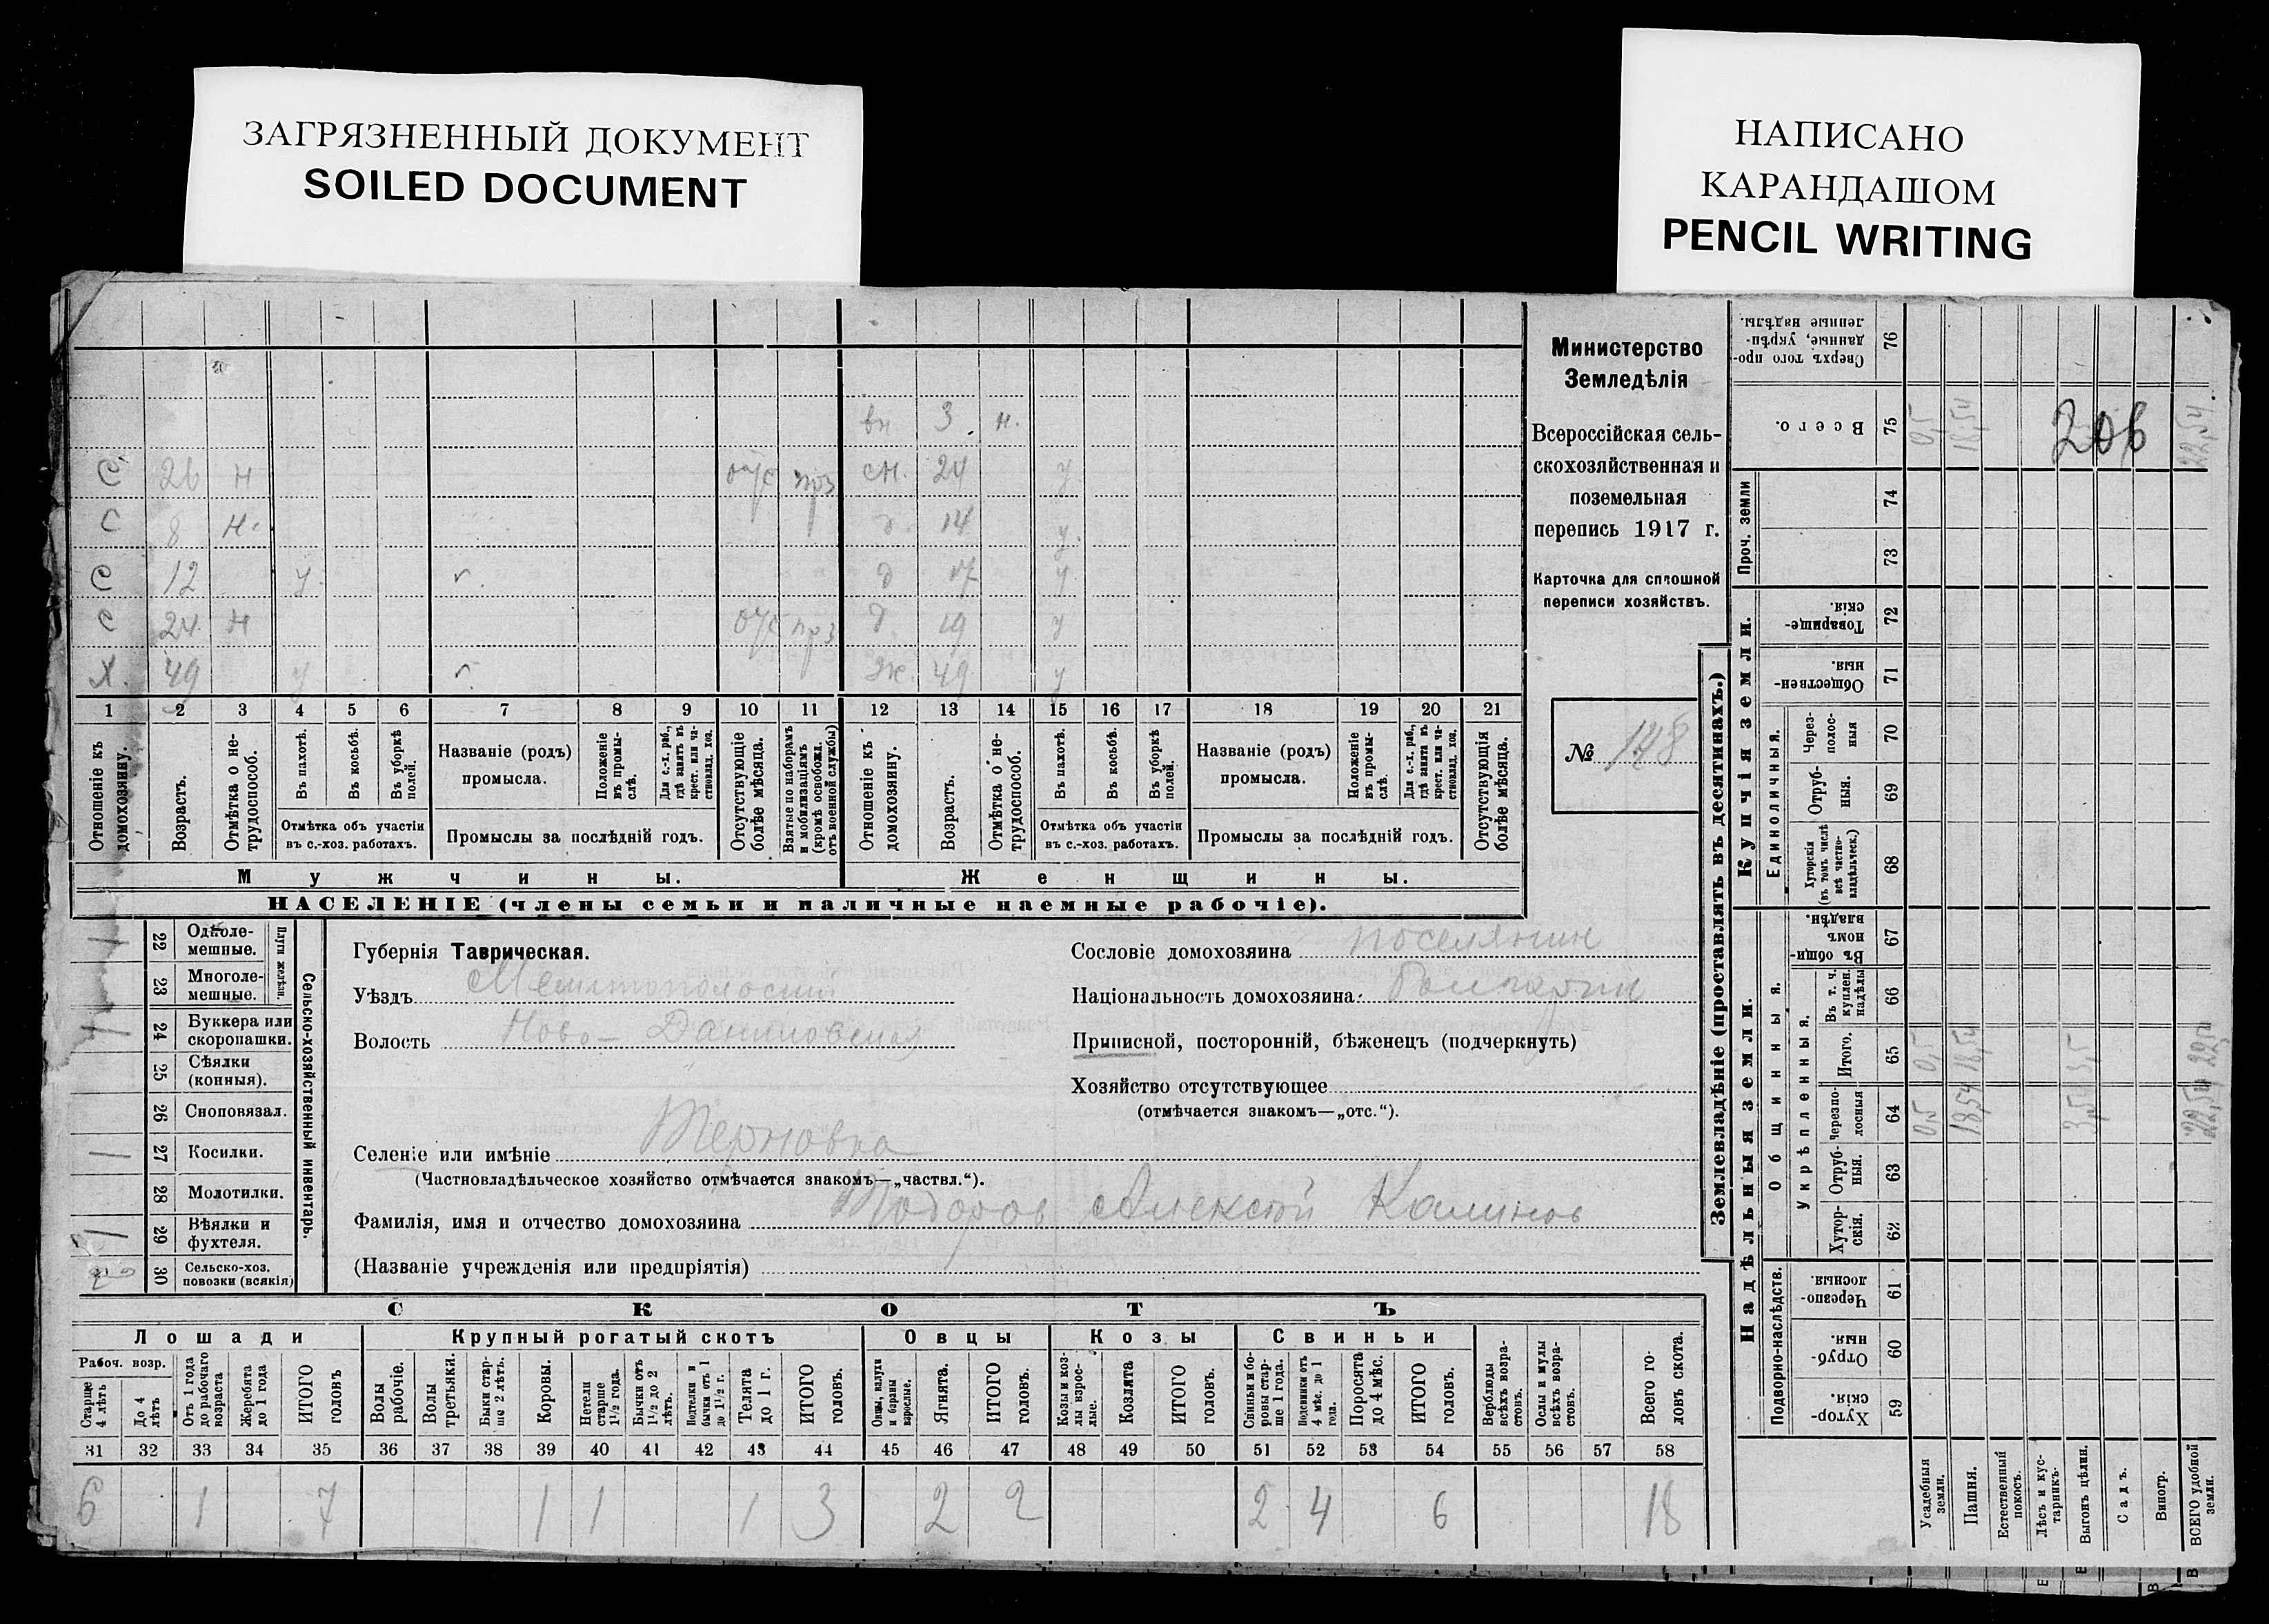 ЗАГРЯЗНЕННЫЙ ДОКУМЕНТ
SOILED DOCUMENT
НАПИСАНО
КАРАНДАШОМ
PENCIL WRITING
вн 3 н.
С 26 н отс прз сн. 24 у
С 8 н. д. 14 у.
С 12 у. г. д 17 у
С 24. н отс прз д 19 у
Х. 49 у г. Ж. 49 у
1 2 3 4 5 6 7 8 9 10 11 12 13 14 15 16 17 18 19 20 21
Отношеніе къ домохозяину.
Возрастъ.
Отмѣтка о не-трудоспособ.
Въ пахотѣ.
Въ косьбѣ.
Въ уборкѣ полей.
Отмѣтка объ участіи
въ с.-хоз. работахъ.
Названіе (родъ)
промысла.
Положеніе въ промы-слѣ.
Для с.-х. раб., гдѣ занятъ въ крест. или ча-стновлад. хоз.
Промыслы за послѣдній годъ.
Отсутствующіе болѣе мѣсяца.
Взятые по наборамъ и мобилизаціямъ (кромѣ освобожд. отъ военной службы)
Отношеніе къ домохозяину.
Возрастъ.
Отмѣтка о не-трудоспособ.
Въ пахотѣ.
Въ косьбѣ.
Въ уборкѣ полей.
Отмѣтка объ участіи
въ с.-хоз. работахъ.
Названіе (родъ)
промысла.
Положеніе въ промы-слѣ.
Для с.-х. раб., гдѣ занятъ въ крест. или ча-стновлад. хоз.
Промыслы за послѣдній годъ.
Отсутствующія болѣе мѣсяца.
Мужчины.
Женщины.
НАСЕЛЕНІЕ (члены семьи и наличные наемные рабочіе).
Министерство
Земледѣлія
Всероссійская сель-
скохозяйственная и
поземельная
перепись 1917 г.
Карточка для сплошной
переписи хозяйствъ.
№ 128
1 22 Одноле-мешные.
23 Многоле-мешные.
Плуги желѣзн.
1 24 Буккера или скоропашки.
25 Сѣялки (конныя).
26 Сноповязал.
1 27 Косилки.
28 Молотилки.
1 29 Вѣялки и фухтеля.
30 Сельско-хоз. повозки (всякія)
Сельско-хозяйственный инвентарь.
Губернія Таврическая.
Уѣздъ Мелитопольскій
Волость Ново-Даниловская
Селеніе или имѣніе Терновка
(Частновладѣльческое хозяйство отмѣчается знакомъ—„частвл.“).
Фамилія, имя и отчество домохозяина Тодоров Алексѣй Калинов
(Названіе учрежденія или предпріятія)
Сословіе домохозяина поселянин
Національность домохозяина: Болгарин
Приписной, посторонній, бѣженецъ (подчеркнуть)
Хозяйство отсутствующее
(отмѣчается знакомъ—„отс.“).
СКОТЪ
Лошади
Крупный рогатый скотъ
Овцы
Козы
Свиньи
Рабоч. возр.
Старше 4 лѣтъ
До 4 лѣтъ
Отъ 1 года до рабочаго возраста
Жеребята до 1 года
ИТОГО головъ
Волы рабочіе.
Волы третьяки.
Быки стар-ше 2 лѣтъ.
Коровы.
Нетели старше 1½ года.
Бычки отъ 1½ до 2 лѣтъ.
Подтелки и бычки отъ 1 до 1½ г.
Телята до 1 г.
ИТОГО головъ.
Овцы, валухи и бараны взрослые.
Ягнята.
ИТОГО головъ.
Козы и коз-лы взрос-лые.
Козлята
ИТОГО головъ.
Свиньи и бо-ровы стар-ше 1 года.
Подсвинки отъ 4 мѣс. до 1 года.
Поросята до 4 мѣс.
ИТОГО головъ.
Верблюды всѣхъ возра-стовъ.
Ослы и мулы всѣхъ возра-стовъ.
Всего го-ловъ скота.
31 32 33 34 35 36 37 38 39 40 41 42 43 44 45 46 47 48 49 50 51 52 53 54 55 56 57 58
6 1 7 1 1 1 3 2 2 2 4 6 18
Землевладѣніе (проставлять въ десятинахъ.)
Купчія земли.
Надѣльныя земли.
Сверхъ того про-данные, укрѣп-ленные надѣлы. 76
Всего. 75 0,5 18,54 206 22,54
Проч. земли
74
73
Товарище-скія. 72
Обществен-ныя. 71
Единоличныя.
Через-полос-ныя 70
Отруб-ныя. 69
Хуторскія (въ томъ числѣ всѣ частно-владѣльческ.) 68
Общинныя.
Въ общи-номъ владѣн. 67
Укрѣпленныя.
Въ т. ч. куплен. надѣлы 66
Итого. 65 0,5 18,54 3,5 22,54
Черезпо-лосныя 64 0,5 18,54 3,5 22,54
Отруб-ныя. 63
Хутор-скія. 62
Подворно-наслѣдств.
Черезпо-лосныя. 61
Отруб-ныя. 60
Хутор-скія. 59
Усадебныя земли.
Пашня.
Естественный покосъ.
Лѣсъ и кус-тарникъ.
Выгонъ цѣлин.
Садъ.
Виногр.
ВСЕГО удобной земли.